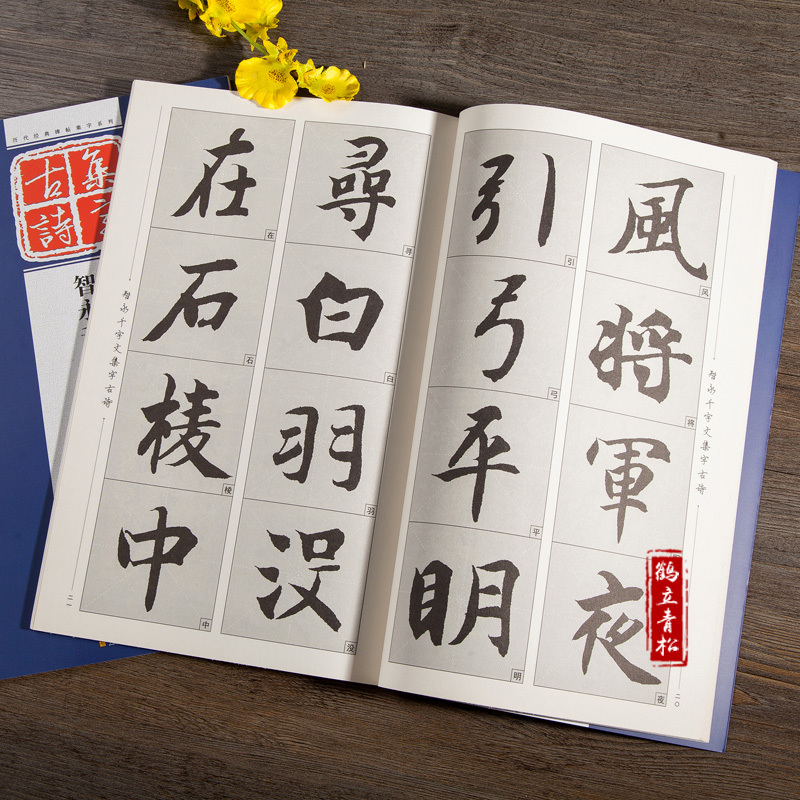 历代经典碑帖集字系列
古詩
智永
智永千字文集字古诗
二〇
風将軍夜
风
将
夜
引弓平明
引
弓
平
明
尋白羽没
寻
白
羽
没
在石棱中
在
石
棱
中
智永千字文集字古诗
二一
鹤立青松